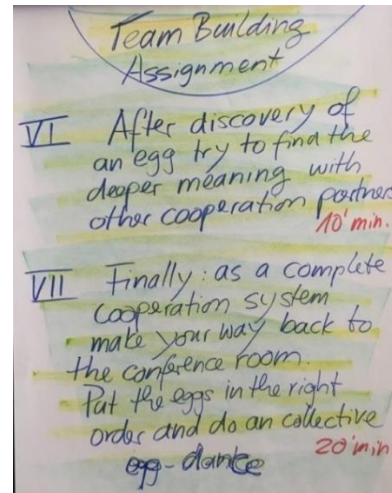 Team Building
Assignment
VI After discovery of
an egg try to find the
deeper meaning with
other cooperation partners
10' min.
VII Finally: as a complete
cooperation system
make your way back to
the conference room.
Put the eggs in the right
order and do an collective
egg-dance
20' min